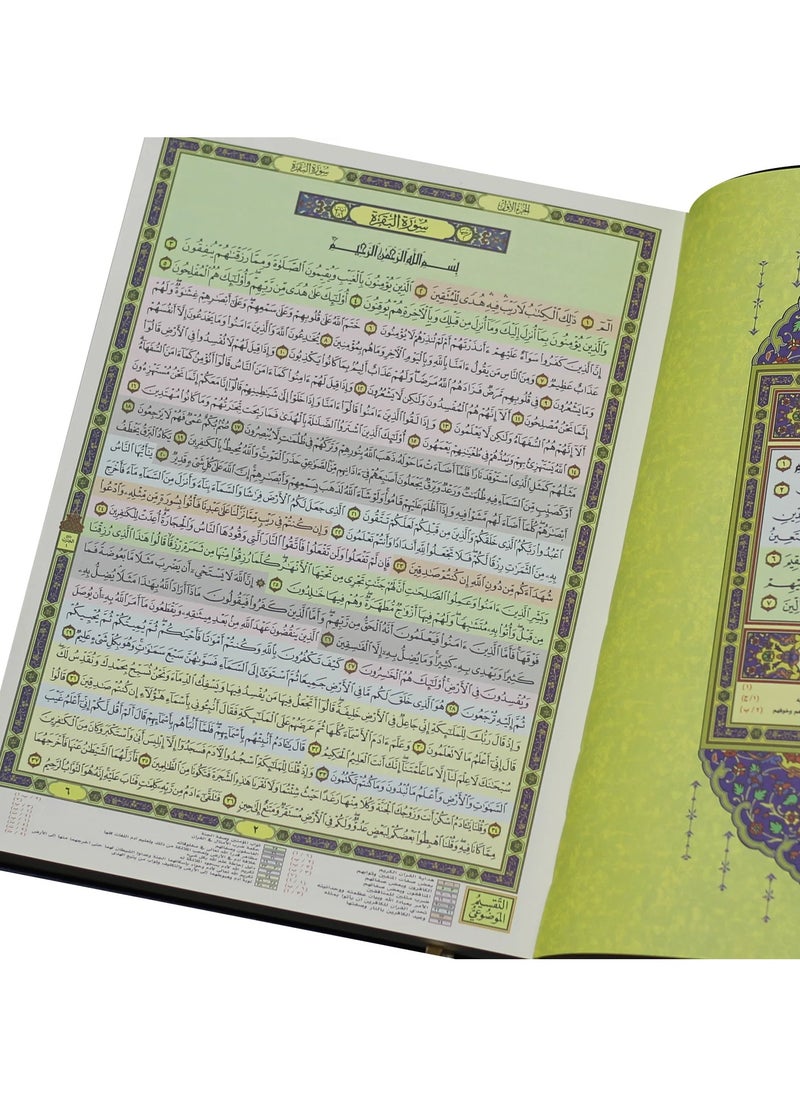 الجزء الأول
سورة البقرة
سورة البقرة
بسم الله الرحمن الرحيم
الٓمٓ ١ ذَٰلِكَ ٱلْكِتَٰبُ لَا رَيْبَ فِيهِ هُدًى لِّلْمُتَّقِينَ ٢ ٱلَّذِينَ يُؤْمِنُونَ بِٱلْغَيْبِ وَيُقِيمُونَ ٱلصَّلَوٰةَ وَمِمَّا رَزَقْنَٰهُمْ يُنفِقُونَ ٣
وَٱلَّذِينَ يُؤْمِنُونَ بِمَآ أُنزِلَ إِلَيْكَ وَمَآ أُنزِلَ مِن قَبْلِكَ وَبِٱلْءَاخِرَةِ هُمْ يُوقِنُونَ ٤ أُو۟لَٰٓئِكَ عَلَىٰ هُدًى مِّن رَّبِّهِمْ وَأُو۟لَٰٓئِكَ هُمُ ٱلْمُفْلِحُونَ ٥
إِنَّ ٱلَّذِينَ كَفَرُوا۟ سَوَآءٌ عَلَيْهِمْ ءَأَنذَرْتَهُمْ أَمْ لَمْ تُنذِرْهُمْ لَا يُؤْمِنُونَ ٦ خَتَمَ ٱللَّهُ عَلَىٰ قُلُوبِهِمْ وَعَلَىٰ سَمْعِهِمْ وَعَلَىٰٓ أَبْصَٰرِهِمْ غِشَٰوَةٌ وَلَهُمْ
عَذَابٌ عَظِيمٌ ٧ وَمِنَ ٱلنَّاسِ مَن يَقُولُ ءَامَنَّا بِٱللَّهِ وَبِٱلْيَوْمِ ٱلْءَاخِرِ وَمَا هُم بِمُؤْمِنِينَ ٨ يُخَٰدِعُونَ ٱللَّهَ وَٱلَّذِينَ ءَامَنُوا۟ وَمَا يَخْدَعُونَ إِلَّآ أَنفُسَهُمْ
وَمَا يَشْعُرُونَ ٩ فِى قُلُوبِهِم مَّرَضٌ فَزَادَهُمُ ٱللَّهُ مَرَضًا وَلَهُمْ عَذَابٌ أَلِيمٌۢ بِمَا كَانُوا۟ يَكْذِبُونَ ١٠ وَإِذَا قِيلَ لَهُمْ لَا تُفْسِدُوا۟ فِى ٱلْأَرْضِ قَالُوٓا۟
إِنَّمَا نَحْنُ مُصْلِحُونَ ١١ أَلَآ إِنَّهُمْ هُمُ ٱلْمُفْسِدُونَ وَلَٰكِن لَّا يَشْعُرُونَ ١٢ وَإِذَا قِيلَ لَهُمْ ءَامِنُوا۟ كَمَآ ءَامَنَ ٱلنَّاسُ قَالُوٓا۟ أَنُؤْمِنُ كَمَآ ءَامَنَ ٱلسُّفَهَآءُ
أَلَآ إِنَّهُمْ هُمُ ٱلسُّفَهَآءُ وَلَٰكِن لَّا يَعْلَمُونَ ١٣ وَإِذَا لَقُوا۟ ٱلَّذِينَ ءَامَنُوا۟ قَالُوٓا۟ ءَامَنَّا وَإِذَا خَلَوْا۟ إِلَىٰ شَيَٰطِينِهِمْ قَالُوٓا۟ إِنَّا مَعَكُمْ إِنَّمَا نَحْنُ مُسْتَهْزِءُونَ
١٤ ٱللَّهُ يَسْتَهْزِئُ بِهِمْ وَيَمُدُّهُمْ فِى طُغْيَٰنِهِمْ يَعْمَهُونَ ١٥ أُو۟لَٰٓئِكَ ٱلَّذِينَ ٱشْتَرَوُا۟ ٱلضَّلَٰلَةَ بِٱلْهُدَىٰ فَمَا رَبِحَت تِّجَٰرَتُهُمْ وَمَا كَانُوا۟ مُهْتَدِينَ ١٦
مَثَلُهُمْ كَمَثَلِ ٱلَّذِى ٱسْتَوْقَدَ نَارًا فَلَمَّآ أَضَآءَتْ مَا حَوْلَهُۥ ذَهَبَ ٱللَّهُ بِنُورِهِمْ وَتَرَكَهُمْ فِى ظُلُمَٰتٍ لَّا يُبْصِرُونَ ١٧ صُمٌّۢ بُكْمٌ عُمْىٌ فَهُمْ لَا يَرْجِعُونَ ١٨
أَوْ كَصَيِّبٍ مِّنَ ٱلسَّمَآءِ فِيهِ ظُلُمَٰتٌ وَرَعْدٌ وَبَرْقٌ يَجْعَلُونَ أَصَٰبِعَهُمْ فِىٓ ءَاذَانِهِم مِّنَ ٱلصَّوَٰعِقِ حَذَرَ ٱلْمَوْتِ وَٱللَّهُ مُحِيطٌۢ بِٱلْكَٰفِرِينَ ١٩ يَكَادُ ٱلْبَرْقُ يَخْطَفُ
أَبْصَٰرَهُمْ كُلَّمَآ أَضَآءَ لَهُم مَّشَوْا۟ فِيهِ وَإِذَآ أَظْلَمَ عَلَيْهِمْ قَامُوا۟ وَلَوْ شَآءَ ٱللَّهُ لَذَهَبَ بِسَمْعِهِمْ وَأَبْصَٰرِهِمْ إِنَّ ٱللَّهَ عَلَىٰ كُلِّ شَىْءٍ قَدِيرٌ ٢٠ يَٰٓأَيُّهَا ٱلنَّاسُ
ٱعْبُدُوا۟ رَبَّكُمُ ٱلَّذِى خَلَقَكُمْ وَٱلَّذِينَ مِن قَبْلِكُمْ لَعَلَّكُمْ تَتَّقُونَ ٢١ ٱلَّذِى جَعَلَ لَكُمُ ٱلْأَرْضَ فِرَٰشًا وَٱلسَّمَآءَ بِنَآءً وَأَنزَلَ مِنَ ٱلسَّمَآءِ مَآءً فَأَخْرَجَ
بِهِۦ مِنَ ٱلثَّمَرَٰتِ رِزْقًا لَّكُمْ فَلَا تَجْعَلُوا۟ لِلَّهِ أَندَادًا وَأَنتُمْ تَعْلَمُونَ ٢٢ وَإِن كُنتُمْ فِى رَيْبٍ مِّمَّا نَزَّلْنَا عَلَىٰ عَبْدِنَا فَأْتُوا۟ بِسُورَةٍ مِّن مِّثْلِهِۦ وَٱدْعُوا۟
شُهَدَآءَكُم مِّن دُونِ ٱللَّهِ إِن كُنتُمْ صَٰدِقِينَ ٢٣ فَإِن لَّمْ تَفْعَلُوا۟ وَلَن تَفْعَلُوا۟ فَٱتَّقُوا۟ ٱلنَّارَ ٱلَّتِى وَقُودُهَا ٱلنَّاسُ وَٱلْحِجَارَةُ أُعِدَّتْ لِلْكَٰفِرِينَ ٢٤
وَبَشِّرِ ٱلَّذِينَ ءَامَنُوا۟ وَعَمِلُوا۟ ٱلصَّٰلِحَٰتِ أَنَّ لَهُمْ جَنَّٰتٍ تَجْرِى مِن تَحْتِهَا ٱلْأَنْهَٰرُ كُلَّمَا رُزِقُوا۟ مِنْهَا مِن ثَمَرَةٍ رِّزْقًا قَالُوا۟ هَٰذَا ٱلَّذِى رُزِقْنَا
مِن قَبْلُ وَأُتُوا۟ بِهِۦ مُتَشَٰبِهًا وَلَهُمْ فِيهَآ أَزْوَٰجٌ مُّطَهَّرَةٌ وَهُمْ فِيهَا خَٰلِدُونَ ٢٥ ۞ إِنَّ ٱللَّهَ لَا يَسْتَحْىِۦٓ أَن يَضْرِبَ مَثَلًا مَّا بَعُوضَةً فَمَا
فَوْقَهَا فَأَمَّا ٱلَّذِينَ ءَامَنُوا۟ فَيَعْلَمُونَ أَنَّهُ ٱلْحَقُّ مِن رَّبِّهِمْ وَأَمَّا ٱلَّذِينَ كَفَرُوا۟ فَيَقُولُونَ مَاذَآ أَرَادَ ٱللَّهُ بِهَٰذَا مَثَلًا يُضِلُّ بِهِۦ
كَثِيرًا وَيَهْدِى بِهِۦ كَثِيرًا وَمَا يُضِلُّ بِهِۦٓ إِلَّا ٱلْفَٰسِقِينَ ٢٦ ٱلَّذِينَ يَنقُضُونَ عَهْدَ ٱللَّهِ مِنۢ بَعْدِ مِيثَٰقِهِۦ وَيَقْطَعُونَ مَآ أَمَرَ ٱللَّهُ بِهِۦٓ أَن يُوصَلَ
وَيُفْسِدُونَ فِى ٱلْأَرْضِ أُو۟لَٰٓئِكَ هُمُ ٱلْخَٰسِرُونَ ٢٧ كَيْفَ تَكْفُرُونَ بِٱللَّهِ وَكُنتُمْ أَمْوَٰتًا فَأَحْيَٰكُمْ ثُمَّ يُمِيتُكُمْ ثُمَّ يُحْيِيكُمْ
ثُمَّ إِلَيْهِ تُرْجَعُونَ ٢٨ هُوَ ٱلَّذِى خَلَقَ لَكُم مَّا فِى ٱلْأَرْضِ جَمِيعًا ثُمَّ ٱسْتَوَىٰٓ إِلَى ٱلسَّمَآءِ فَسَوَّىٰهُنَّ سَبْعَ سَمَٰوَٰتٍ وَهُوَ بِكُلِّ شَىْءٍ عَلِيمٌ ٢٩
وَإِذْ قَالَ رَبُّكَ لِلْمَلَٰٓئِكَةِ إِنِّى جَاعِلٌ فِى ٱلْأَرْضِ خَلِيفَةً قَالُوٓا۟ أَتَجْعَلُ فِيهَا مَن يُفْسِدُ فِيهَا وَيَسْفِكُ ٱلدِّمَآءَ وَنَحْنُ نُسَبِّحُ بِحَمْدِكَ وَنُقَدِّسُ لَكَ
قَالَ إِنِّىٓ أَعْلَمُ مَا لَا تَعْلَمُونَ ٣٠ وَعَلَّمَ ءَادَمَ ٱلْأَسْمَآءَ كُلَّهَا ثُمَّ عَرَضَهُمْ عَلَى ٱلْمَلَٰٓئِكَةِ فَقَالَ أَنۢبِـُٔونِى بِأَسْمَآءِ هَٰٓؤُلَآءِ إِن كُنتُمْ صَٰدِقِينَ ٣١ قَالُوا۟
سُبْحَٰنَكَ لَا عِلْمَ لَنَآ إِلَّا مَا عَلَّمْتَنَآ إِنَّكَ أَنتَ ٱلْعَلِيمُ ٱلْحَكِيمُ ٣٢ قَالَ يَٰٓـَٔادَمُ أَنۢبِئْهُم بِأَسْمَآئِهِمْ فَلَمَّآ أَنۢبَأَهُم بِأَسْمَآئِهِمْ قَالَ أَلَمْ أَقُل لَّكُمْ إِنِّىٓ أَعْلَمُ غَيْبَ
ٱلسَّمَٰوَٰتِ وَٱلْأَرْضِ وَأَعْلَمُ مَا تُبْدُونَ وَمَا كُنتُمْ تَكْتُمُونَ ٣٣ وَإِذْ قُلْنَا لِلْمَلَٰٓئِكَةِ ٱسْجُدُوا۟ لِءَادَمَ فَسَجَدُوٓا۟ إِلَّآ إِبْلِيسَ أَبَىٰ وَٱسْتَكْبَرَ وَكَانَ مِنَ ٱلْكَٰفِرِينَ
٣٤ وَقُلْنَا يَٰٓـَٔادَمُ ٱسْكُنْ أَنتَ وَزَوْجُكَ ٱلْجَنَّةَ وَكُلَا مِنْهَا رَغَدًا حَيْثُ شِئْتُمَا وَلَا تَقْرَبَا هَٰذِهِ ٱلشَّجَرَةَ فَتَكُونَا مِنَ ٱلظَّٰلِمِينَ ٣٥ فَأَزَلَّهُمَا ٱلشَّيْطَٰنُ عَنْهَا فَأَخْرَجَهُمَا
مِمَّا كَانَا فِيهِ وَقُلْنَا ٱهْبِطُوا۟ بَعْضُكُمْ لِبَعْضٍ عَدُوٌّ وَلَكُمْ فِى ٱلْأَرْضِ مُسْتَقَرٌّ وَمَتَٰعٌ إِلَىٰ حِينٍ ٣٦ فَتَلَقَّىٰٓ ءَادَمُ مِن رَّبِّهِۦ كَلِمَٰتٍ فَتَابَ عَلَيْهِ إِنَّهُۥ هُوَ ٱلتَّوَّابُ ٱلرَّحِيمُ ٣٧
٢
٦
التقسيم
الموضوعي
هداية القرآن الكريم